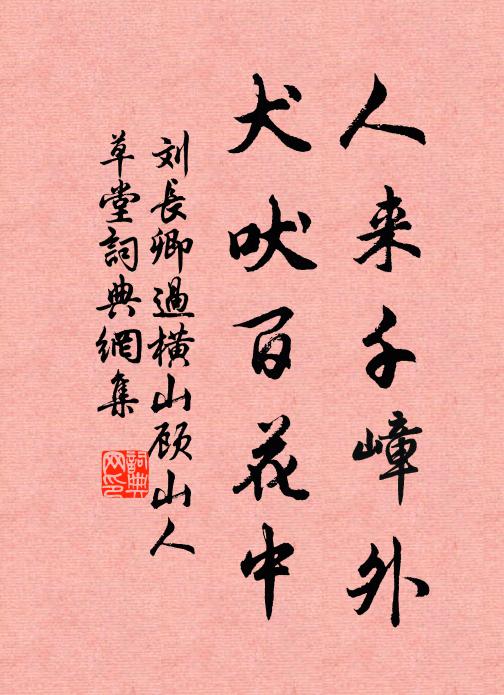 人来千嶂外
犬吠百花中
刘長卿過横山顾山人
草堂詞典網集
詞典
网印